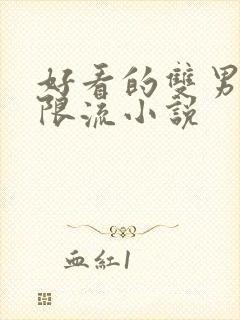 好看的雙男
限流小說
血紅1